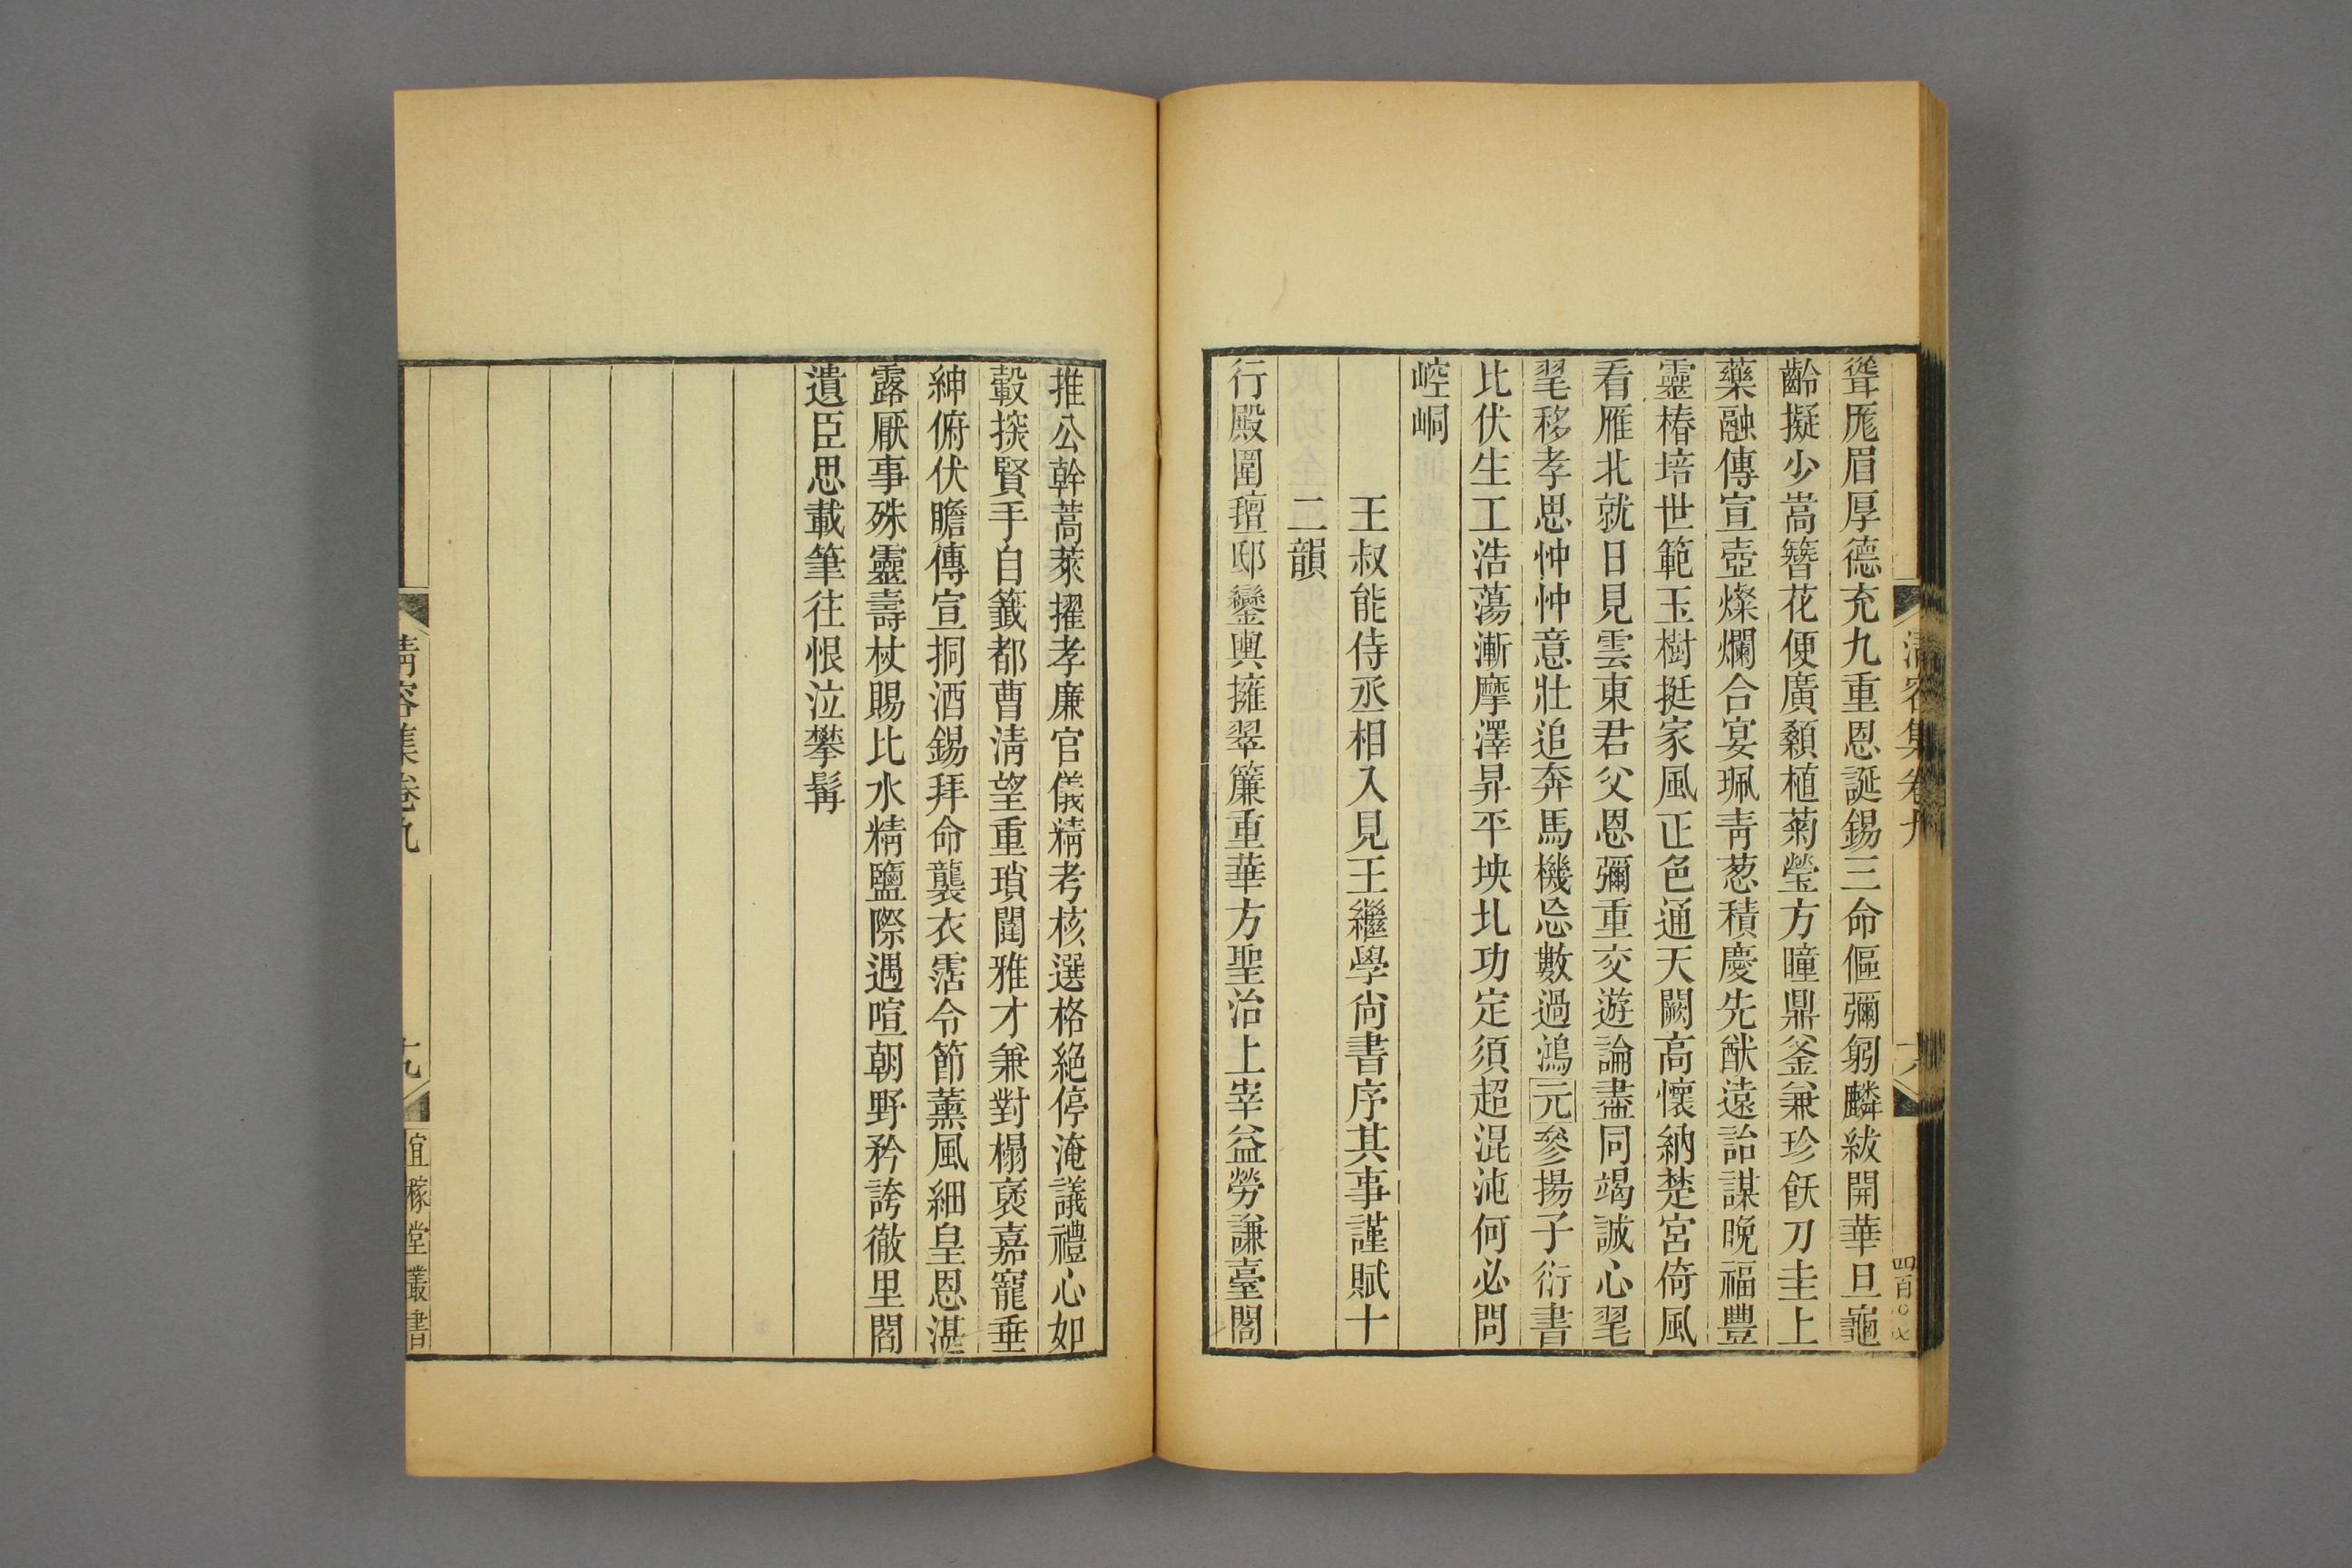 聳厖眉厚德充九重恩誕錫三命傴彌躬麟紱開華旦龜
齡擬少嵩簪花便廣顙植菊瑩方瞳鼎釜兼珍飫刀圭上
藥融傳宣壺燦爛合宴珮靑葱積慶先猷遠詒謀晚福豐
靈椿培世範玉樹挺家風正色通天闕高懷納楚宮倚風
看雁北就日見雲東君父恩彌重交遊論盡同竭誠心毣
毣移孝思忡忡意壯追奔馬機忘數過鴻元參揚子衍書
比伏生工浩蕩漸摩澤昇平坱圠功定須超混沌何必問
崆峒
王叔能侍丞相入見王繼學尙書序其事謹賦十
二韻
行殿圍璮邸鑾輿擁翠簾重華方聖治上宰益勞謙臺閣
淸容集卷九
四百〇七
推公幹蒿萊擢孝廉官儀精考核選格絕停淹議禮心如
轂掞賢手自籤都曹淸望重瑣闥雅才兼對榻褒嘉寵垂
紳俯伏瞻傳宣挏酒錫拜命襲衣霑令節薰風細皇恩湛
露厭事殊靈壽杖賜比水精鹽際遇喧朝野矜誇徹里閻
遺臣思載筆往恨泣攀髯
淸容集卷九
十九
宜稼堂叢書